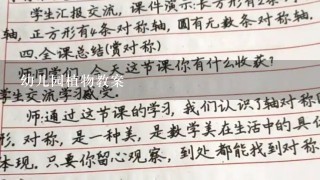 学生汇报交流，课件演示：长方形有2条
轴，正方形有4条对称轴，圆有无数条对称轴.
四.全课总结(赏对称)
天这节课你有什么收获?
幼儿园植物教案
学生交流学习
师:通过这节课的学习，我们认识了轴对称图
形.对称，是一种美，是数学美在生活中的具体
体现.只要你留心观察，到处都能找到对称